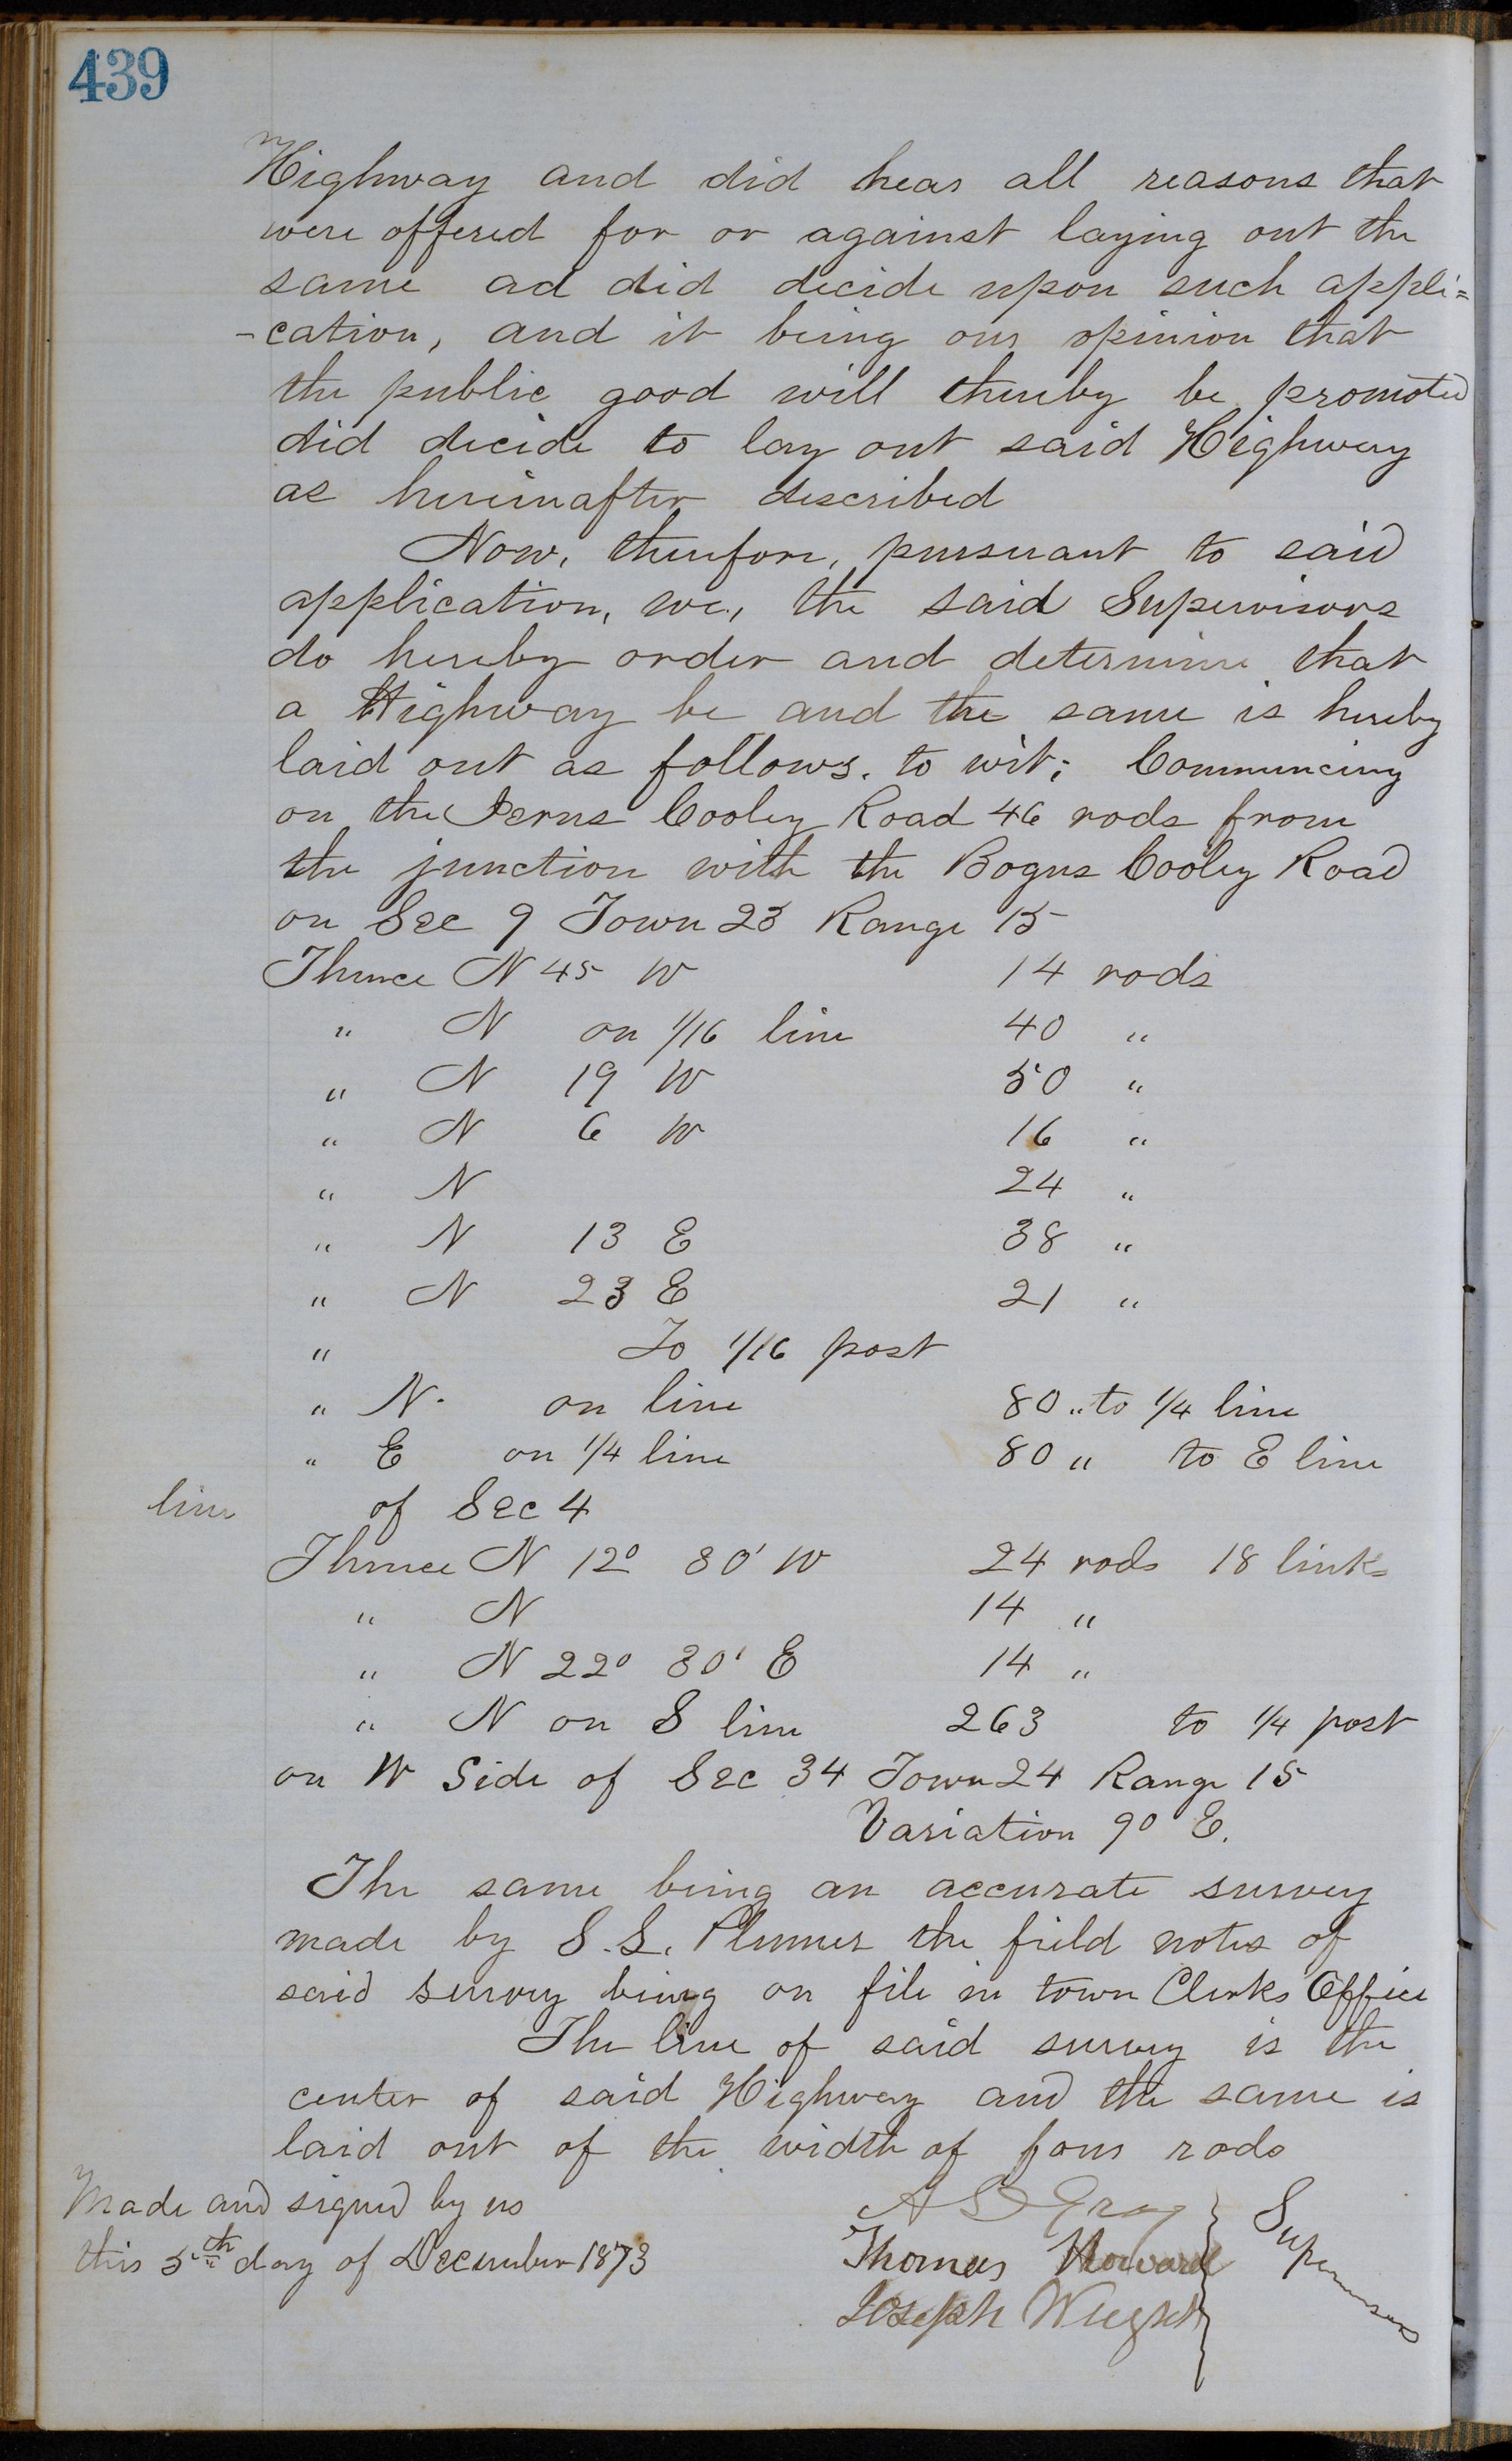 439
Highway and did hear all reasons that
were offered for or against laying out the
same ad did decide upon such appli=
-cation, and it being our opinion that
the public good will thereby be promoted
did decide to lay out said Highway
as hereinafter described
Now, therefore, pursuant to said
application, we, the said Supervisors
do hereby order and determine that
a Highway be and the same is hereby
laid out as follows. to wit; Commencing
on the Cooley Road 46 rods from
the junction with the Bogus Cooley Road
on Sec 9 Town 23 Range 15
Thence N 45 W 14 rods
" N on 1/16 line 40 "
" N 19 W 50 "
" N 6 W 16 "
" N 24 "
" N 13 E 38 "
" N 23 E 21 "
" To 1/16 post
" N. on line 80 " to 1/4 line
" E on 1/4 line 80 " to E line
line of Sec 4
Thence N 12° 30' W 24 rods 18 links
" N 14 "
" N 22° 30' E 14 "
" N on S line 263 to 1/4 post
on W Side of Sec 34 Town 24 Range 15
Variation 9° E.
The same being an accurate survey
made by S. S. Plummer the field notes of
said survey being on file in town Clerks Office
The line of said survey is the
center of said Highway and the same is
laid out of the width of four rods
Made and signed by us
this 5th day of December 1873
A S Gray
Thomas Howard
Joseph Wright
Supervisors